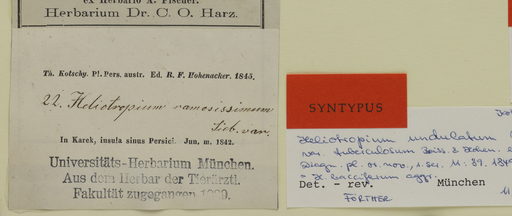 ex Herbario A. Fischer.
Herbarium Dr. C. O. Harz.
Th. Kotschy. Pl. Pers. austr. Ed. R. F. Hohenacker. 1845.
22. Heliotropium ramosissimum
Sieb. var.
In Karek, insula sinus Persici. Jun. m. 1842.
Universitäts-Herbarium München.
Aus dem Herbar der Tierärztl.
Fakultät zugegangen
SYNTYPUS
Heliotropium undulatum
var. tuberculosum Boiss. & Hohen.
Diagn. pl. or. nov., 1. ser.
= H. bacciferum aggr.
Det. - rev. München
FÖRTHER